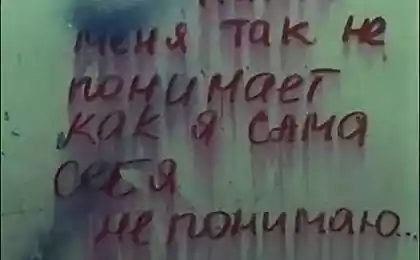 меня так не
понимает
как я сама
себя
не понимаю...